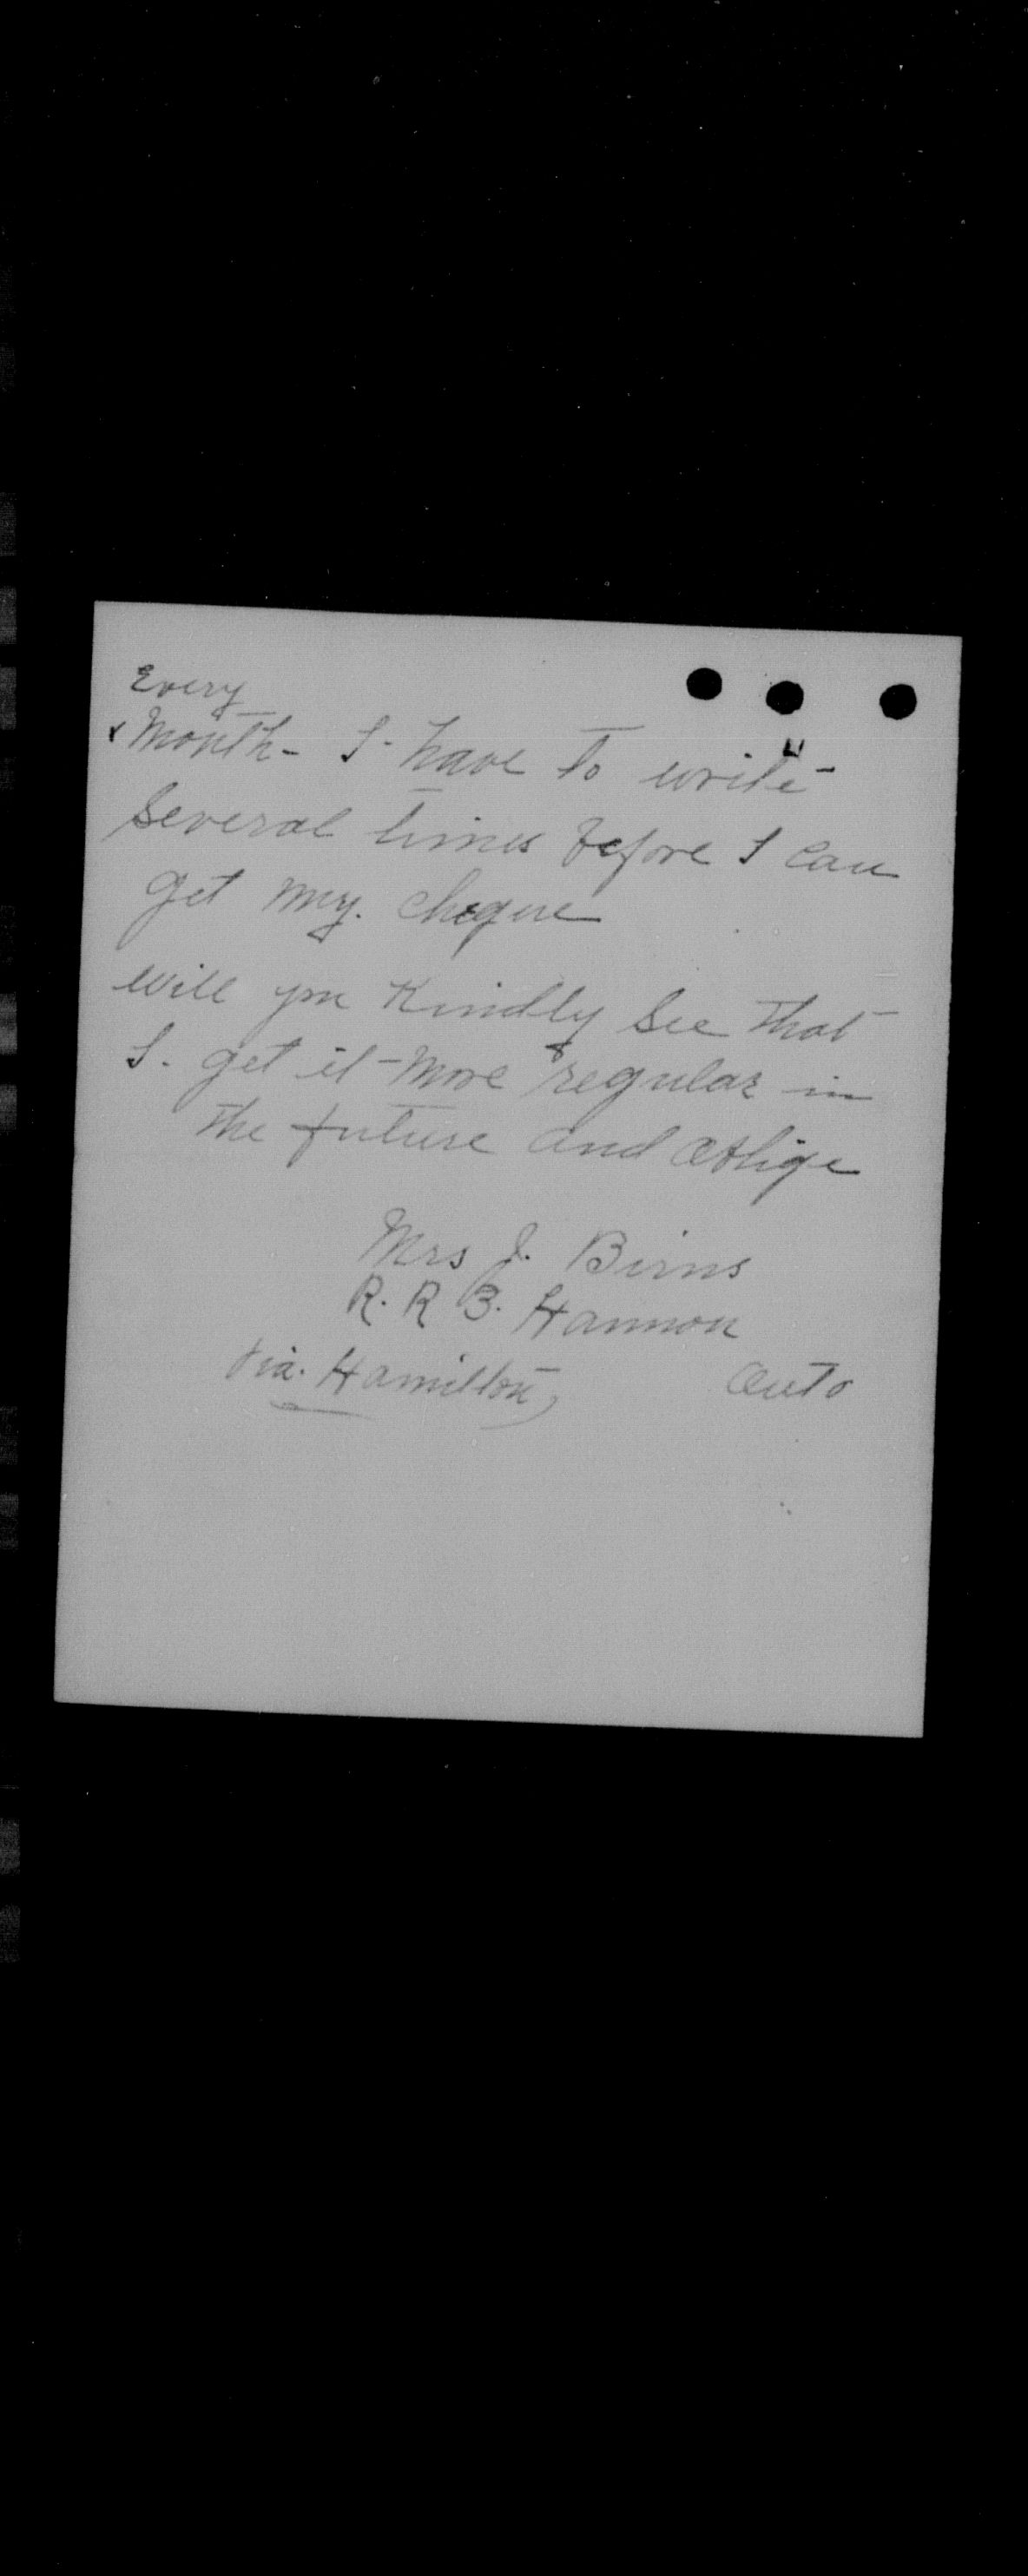 Every
Month - I - have to write
several times before I can
get my. cheque
will you Kindly see that
I. get it more regular in
the future and oblige
Mrs J. Birns
R. R 3. Hannon
via. Hamilton, Onto